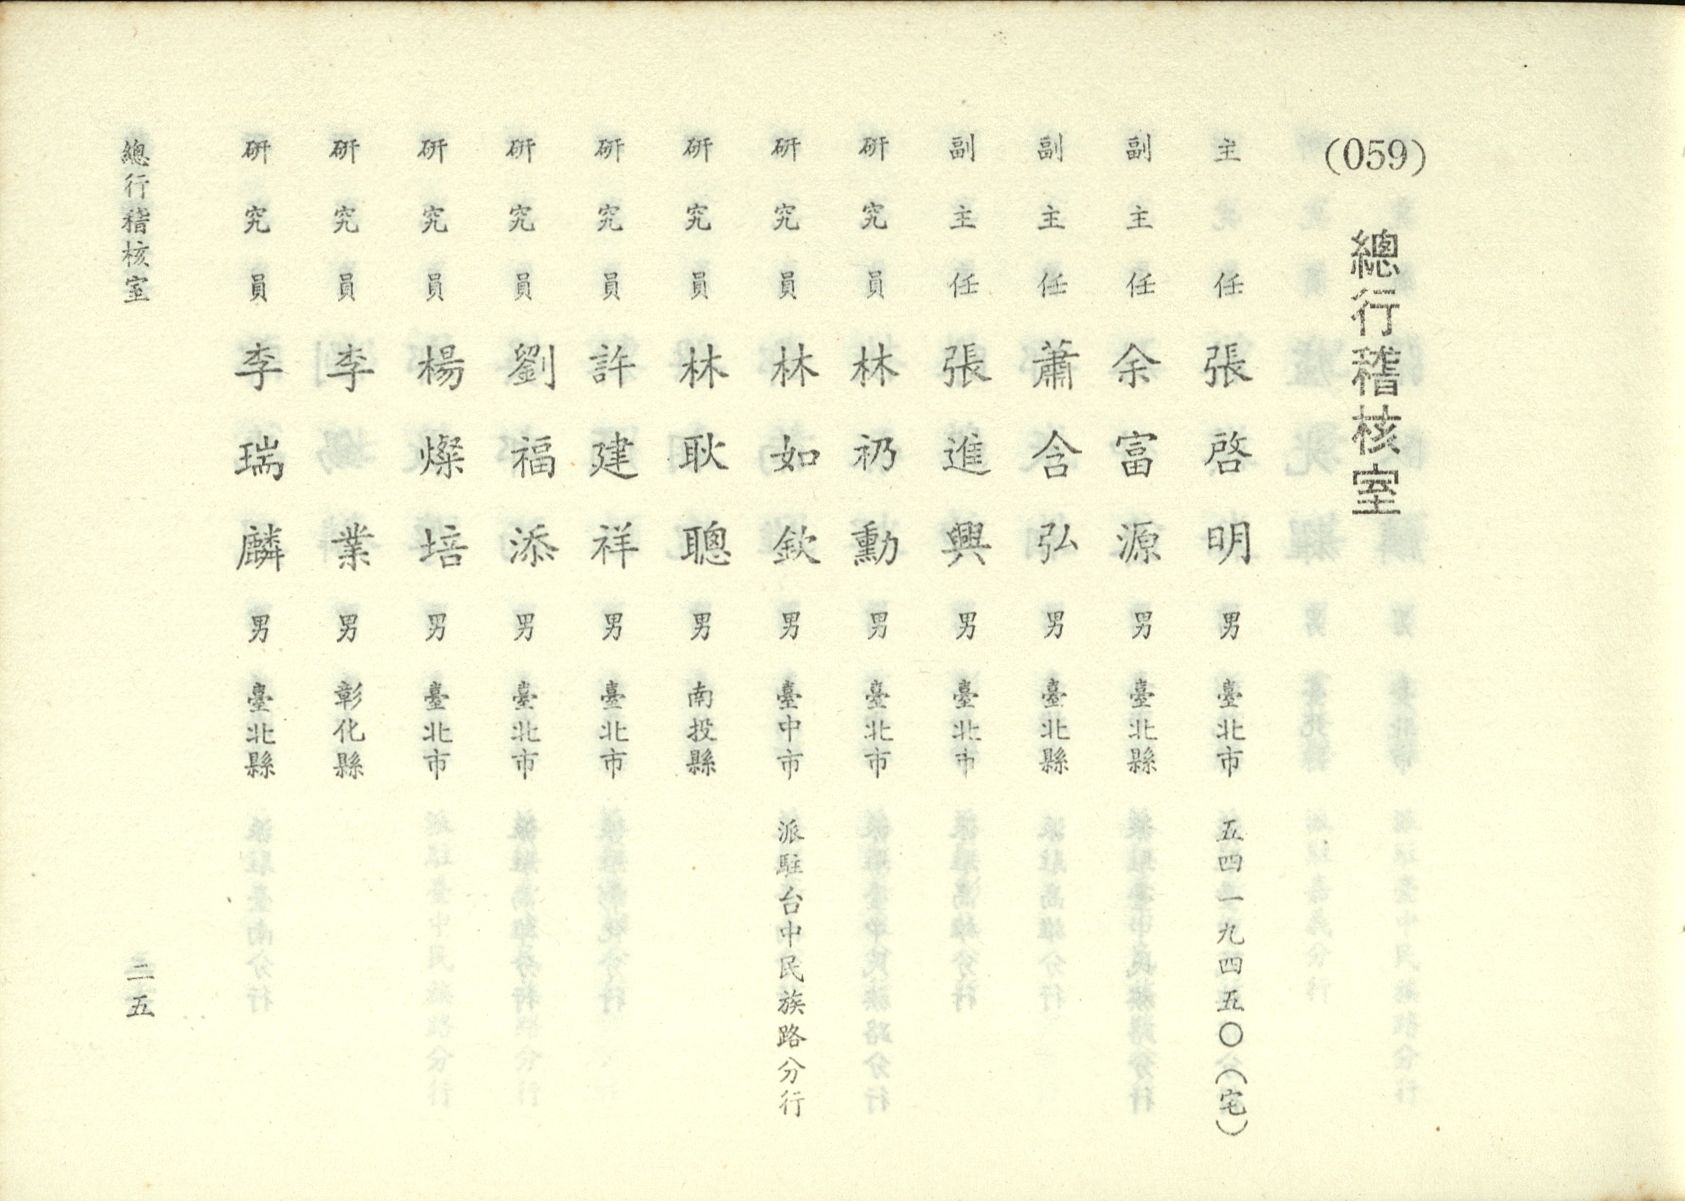 (059)
總行稽核室
主任 張啓明 男 臺北市 五四一九四五〇(宅)
副主任 余富源 男 臺北縣
副主任 蕭含弘 男 臺北縣
副主任 張進興 男 臺北市
研究員 林礽勳 男 臺北市
研究員 林如欽 男 臺中市 派駐台中民族路分行
研究員 林耿聰 男 南投縣
研究員 許建祥 男 臺北市
研究員 劉福添 男 臺北市
研究員 楊燦培 男 臺北市
研究員 李業 男 彰化縣
研究員 李瑞麟 男 臺北縣
總行稽核室
二五